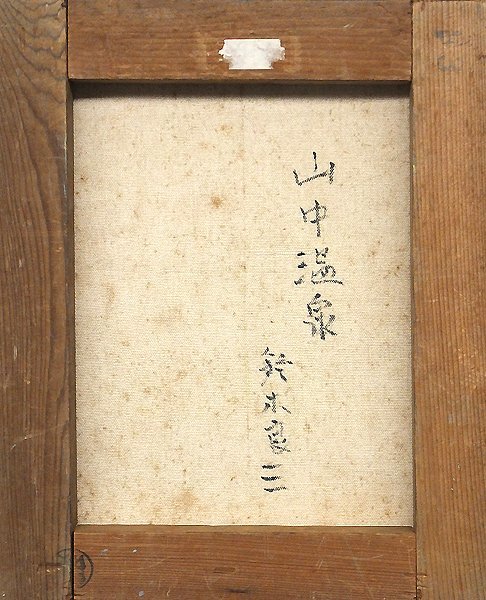 山中温泉
鈴木良三